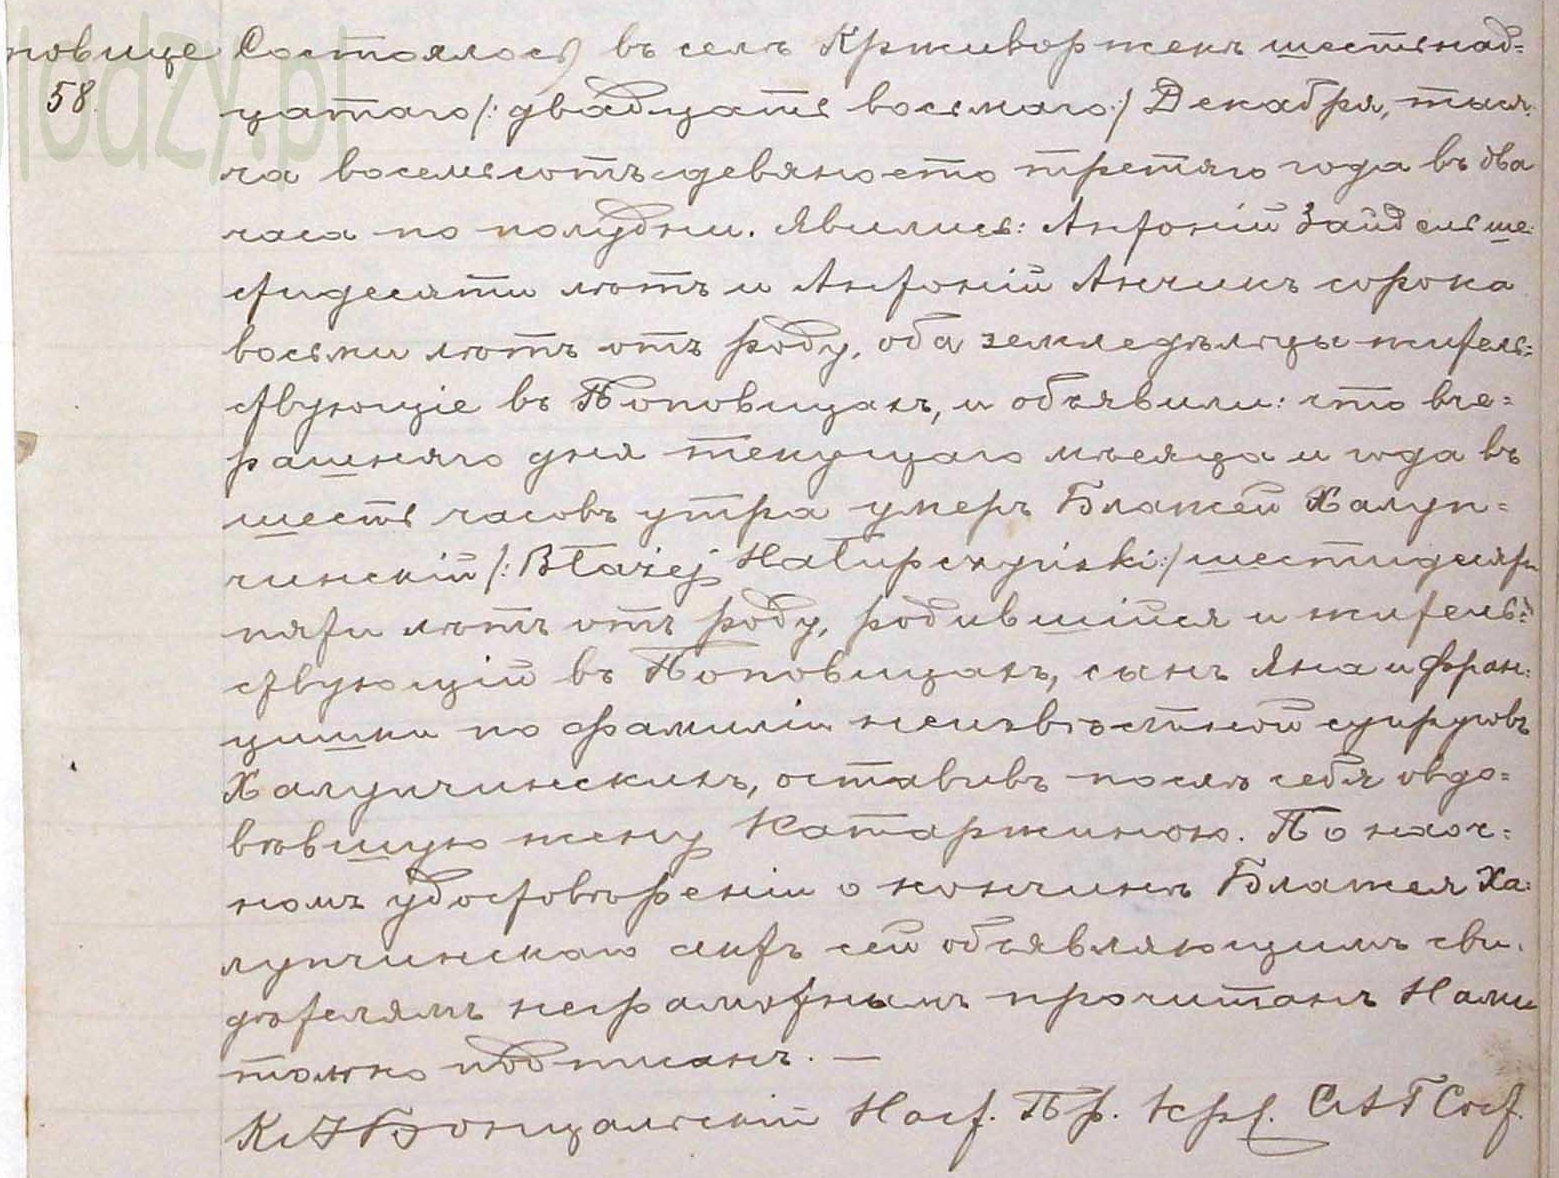 повице Состоялось въ селѣ Крживоржекѣ шестьнад=
58. цатаго /: двадцать восьмаго :/ Декабря, тыся=
ча восемьсотъ девяносто третяго года въ два
часа по полудни. Явились: Антоній Зайдель ше=
стидесяти лѣтъ и Антоній Анчикъ сорока
восьми лѣтъ отъ роду, оба земледѣльцы житель=
ствующіе въ Поповицахъ, и объявили: что вче=
рашняго дня текущаго мѣсяца и года въ
шесть часовъ утра умеръ Блажей Халуп=
чинскій /: Błażej Hałupczyński :/ шестидесяти
пяти лѣтъ отъ роду, родившійся и житель=
ствующій въ Поповицахъ, сынъ Яна и Фран=
цишки по фамиліи неизвѣстной супруговъ
Халупчинскихъ, оставивъ послѣ себя овдо=
вѣвшую жену Катаржиною. По наоч=
номъ удостовѣреніи о кончинѣ Блажея Ха=
лупчинскаго актъ сей объявляющимъ сви=
дѣтелямъ неграмотнымъ прочитанъ Нами
только подписанъ. —
Наст. Пр. Крж. САГ Сост.
lodzy.pl